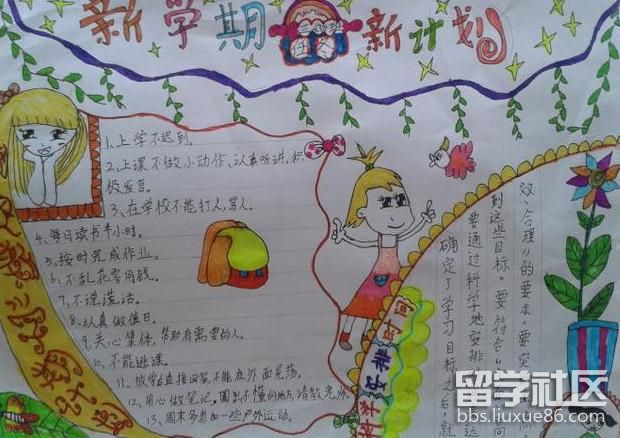 新学期 新计划
1、上学不迟到。
2、上课不做小动作、认真听讲，积
极发言。
3、在学校不能打人，骂人。
4、每日读书半小时。
5、按时完成作业。
6、不乱花零用钱。
7、不说谎话。
8、认真做值日。
9、关心集体，帮助有需要的人。
10、不能逃课。
11、放学后直接回家，不能在外面晃荡。
12、用心做笔记，圈出不懂的地方，请教老师。
13、周末多参加一些户外运动。
科学安排时间
确定了学习目标之后，就
要通过科学地安排
到这些目标。要符合“
效、合理”的要求。要
留学社区
bbs.liuxue86.com